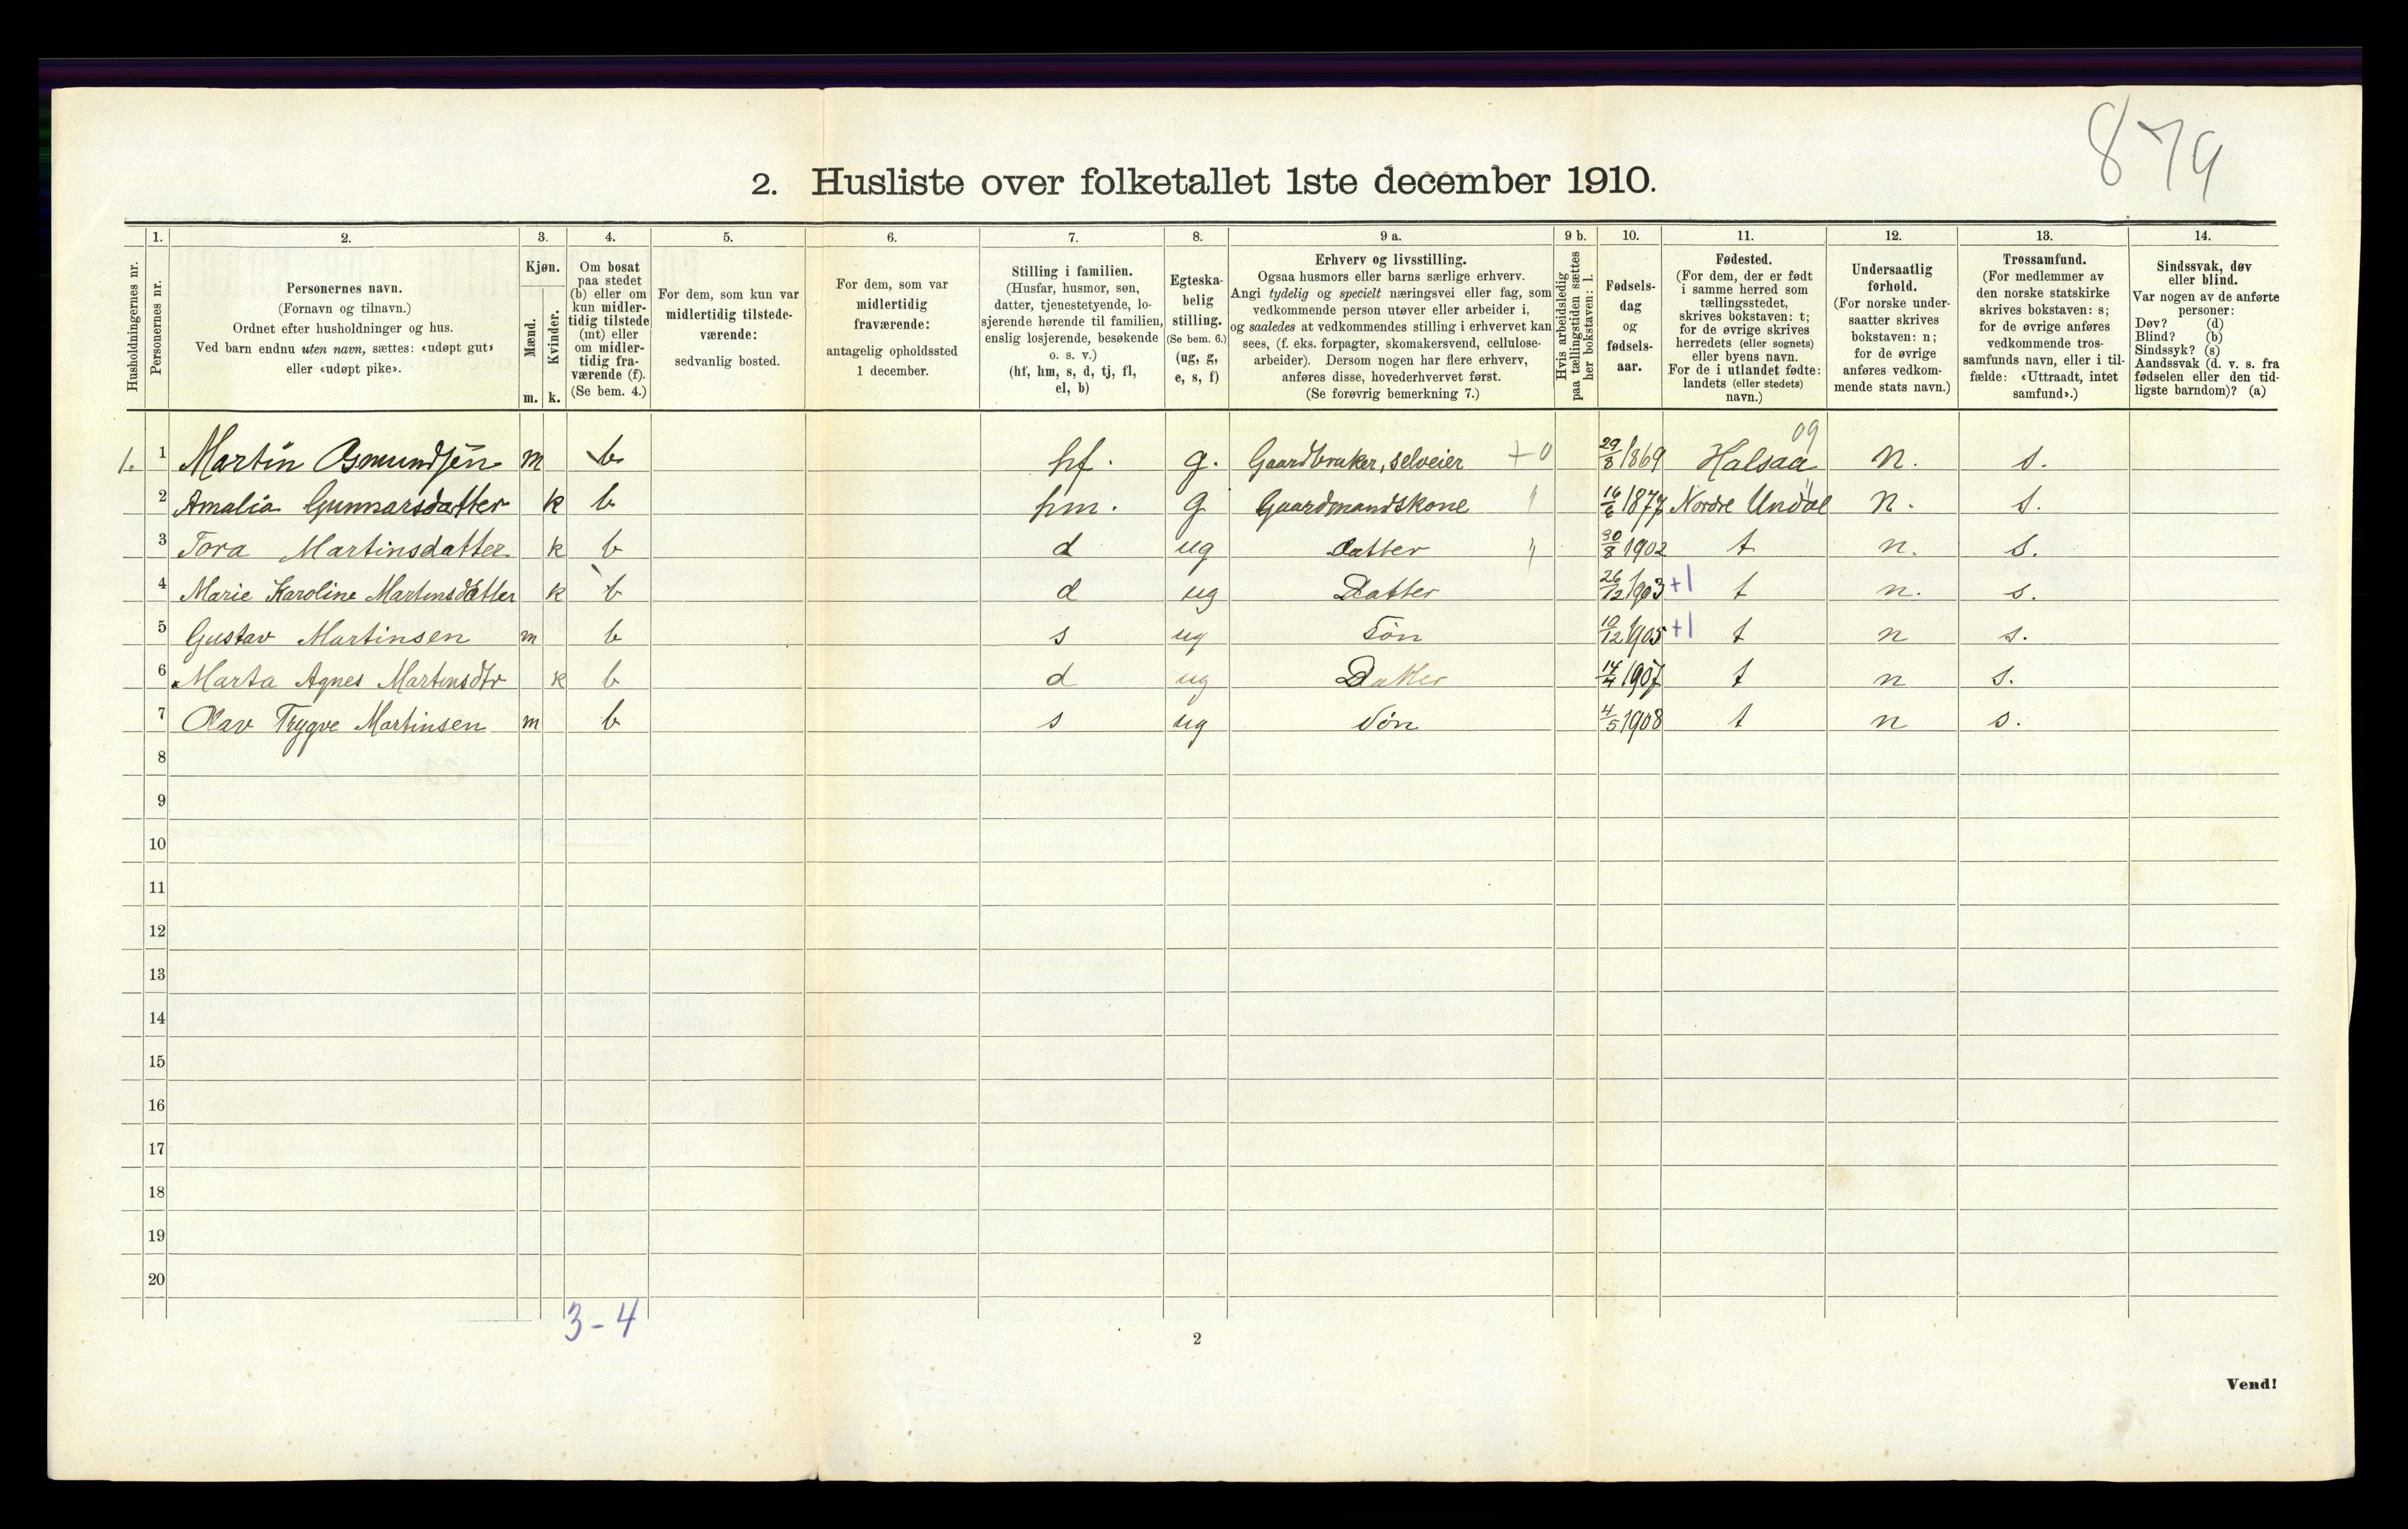 879
2. Husliste over folketallet 1ste december 1910.
Husholdningernes nr.
1.
Personernes nr.
2.
Personernes navn.
(Fornavn og tilnavn.)
Ordnet efter husholdninger og hus.
Ved barn endnu uten navn, sættes: «udøpt gut»
eller «udøpt pike».
3.
Kjøn.
Mænd.
Kvinder.
m. k.
4.
Om bosat
paa stedet
(b) eller om
kun midler-
tidig tilstede
(mt) eller
om midler-
tidig fra-
værende (f).
(Se bem. 4.)
5.
For dem, som kun var
midlertidig tilstede-
værende:
sedvanlig bosted.
6.
For dem, som var
midlertidig
fraværende:
antagelig opholdssted
1 december.
7.
Stilling i familien.
(Husfar, husmor, søn,
datter, tjenestetyende, lo-
sjerende hørende til familien,
enslig losjerende, besøkende
o. s. v.)
(hf, hm, s, d, tj, fl,
el, b)
8.
Egteska-
belig
stilling.
(Se bem. 6.)
(ug, g,
e, s, f)
9 a.
Erhverv og livsstilling.
Ogsaa husmors eller barns særlige erhverv.
Angi tydelig og specielt næringsvei eller fag, som
vedkommende person utøver eller arbeider i,
og saaledes at vedkommendes stilling i erhvervet kan
sees, (f. eks. forpagter, skomakersvend, cellulose-
arbeider). Dersom nogen har flere erhverv,
anføres disse, hovederhvervet først.
(Se forøvrig bemerkning 7.)
9 b.
Hvis arbeidsledig
paa tællingstiden sættes
her bokstaven: l.
10.
Fødsels-
dag
og
fødsels-
aar.
11.
Fødested.
(For dem, der er født
i samme herred som
tællingsstedet,
skrives bokstaven: t;
for de øvrige skrives
herredets (eller sognets)
eller byens navn.
For de i utlandet fødte:
landets (eller stedets)
navn.)
12.
Undersaatlig
forhold.
(For norske under-
saatter skrives
bokstaven: n;
for de øvrige
anføres vedkom-
mende stats navn.)
13.
Trossamfund.
(For medlemmer av
den norske statskirke
skrives bokstaven: s;
for de øvrige anføres
vedkommende tros-
samfunds navn, eller i til-
fælde: «Uttraadt, intet
samfund».)
14.
Sindssvak, døv
eller blind.
Var nogen av de anførte
personer:
Døv? (d)
Blind? (b)
Sindssyk? (s)
Aandssvak (d. v. s. fra
fødselen eller den tid-
ligste barndom)? (a)
09
1. 1 Martin Osmundsen m b hf. g. Gaardbruker, selveier +0 29/8 1869 Halsaa n. s.
2 Amalia Gunnarsdatter k b hm. g Gaardmandskone " 16/6 1877 Nordre Undal n. s.
3 Tora Martinsdatter k b d ug datter " 30/8 1902 t n. s.
4 Marie Karoline Martinsdatter k b d ug Datter 26/12 1903 +1 t n. s.
5 Gustav Martinsen m b s ug Søn 10/12 1905 +1 t n s.
6 Marta Agnes Martinsdtr k b d ug Datter 14/4 1907 t n s.
7 Olav Trygve Martinsen m b s ug Søn 4/5 1908 t n s.
8
9
10
11
12
13
14
15
16
17
18
19
20
3-4
2
Vend!